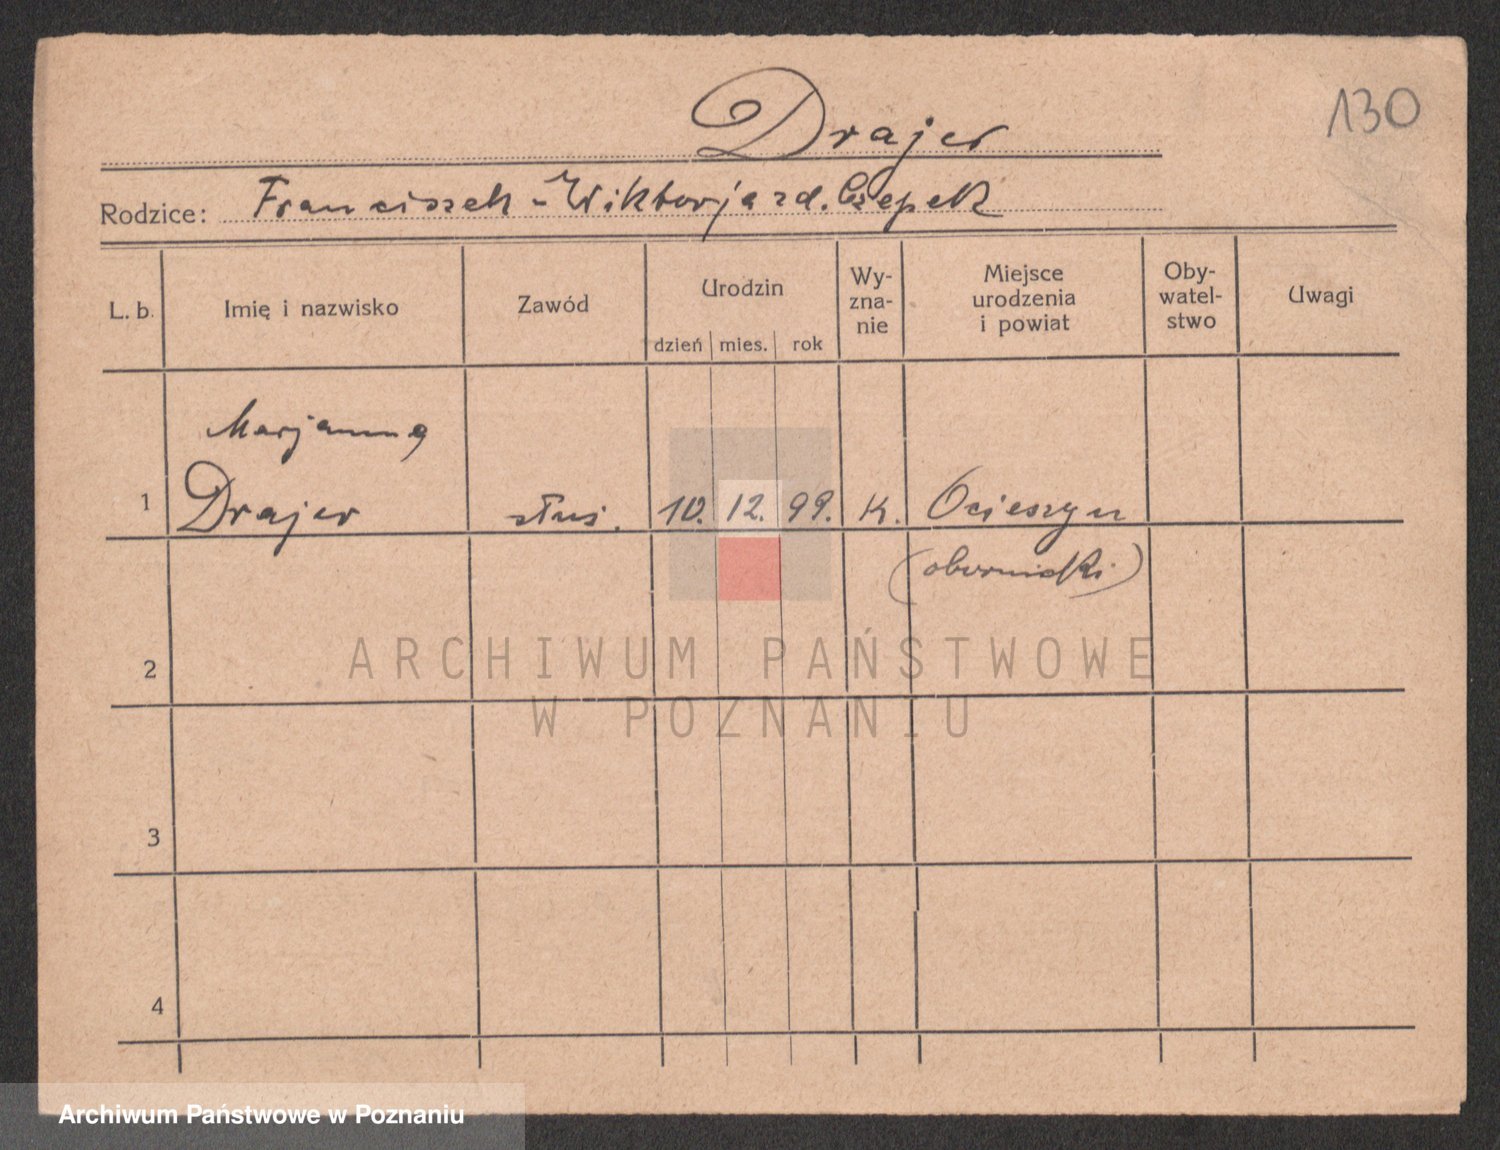 130
Drajer
Rodzice: Franciszek - Wiktorja zd. Czepek
L. b. Imię i nazwisko Zawód Urodzin dzień mies. rok Wy-zna-nie Miejsce urodzenia i powiat Oby-watel-stwo Uwagi
Marjanna
1 Drajer służ. 10. 12. 99. K. Ocieszyn
(obornicki)
2
ARCHIWUM PAŃSTWOWE
W POZNANIU
3
4
Archiwum Państwowe w Poznaniu